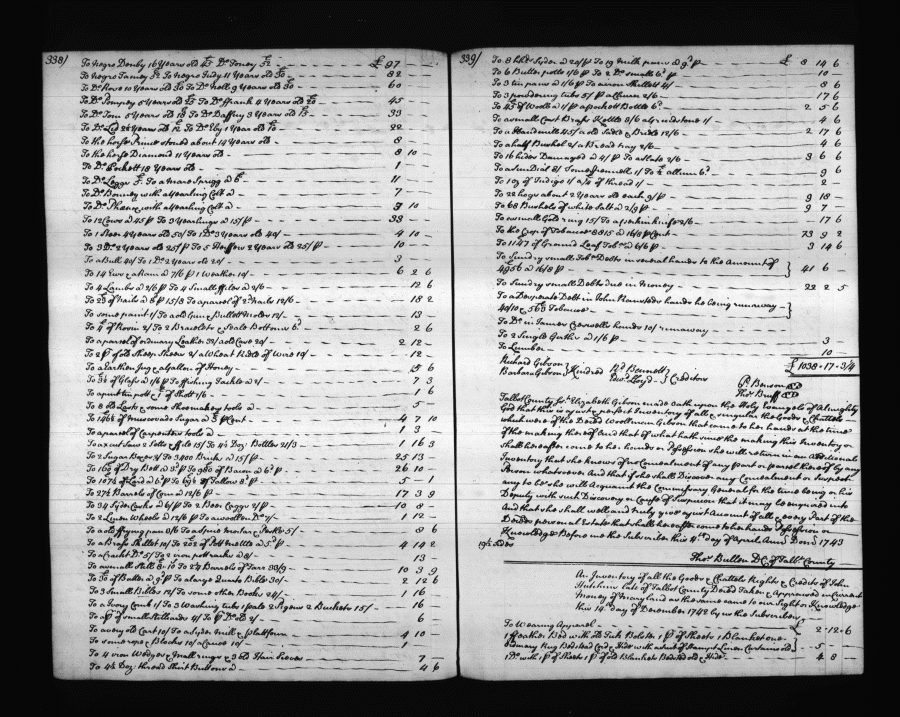 338/
To negro Denby 16 Years old £ Do Toney £ £ 97
To negro Tamey £ To negro Judy 11 Years old 82
To Do Rose 10 Years old To Do Noll 9 Years old 60
To Do Pompey 5 Years old To Do Frank 4 Years old 45
To Do Tom 5 Years old To Do Daffney 3 Years old 33
To Do 28 Years old To Do 1 Year old 22
To the horse stoned about 14 Years old 8
To the horse Diamond 11 Years old 8 10
To Do 18 Years old 1
To Do To a mare 11
To Do Bonney with a Yearling Colt 7
To Do with a Yearling Colt 9 10
To 12 Cows a 45 P To 9 Yearlings a 15/P 33
To 1 Steer 4 Years old 50/ To 1 Do 3 Years old 40/ 4 10
To 3 Do 2 Years old 25/P To 5 Heiffers 2 Years old 25/P 10
To a Bull 40/ To 1 Do 2 Years old 20/ 3
To 14 Ewes & a Ram a 7/6 P 1 Weather 10/ 6 2 6
To 4 Lambs a 2/6 P To 4 Small a 2/6 12 6
To of nails a 8 P 15/8 To a parcel of nails 12/6 18 2
To some paint 1/ To a old Gun & Bullet moles 12/ 13
To of Rosin 2/ To 2 Bracelets & Seale Bottom 6d 2 6
To a parcel of ordinary Leather 32/ a old Case 20/ 2 12
To 2 P of old Sheep Shears 2/ a Wheat Ridle of Wire 10/ 12
To a Earthen Jugg & Gallon of Honey 15 6
To of Glass a 1/6 P To Fishing Tackle a 2/ 7 3
To a pint tin pott of Shott 1/6 1 6
To 8 old Lasts & some Shoemakers tools a 5
To 146 of muscovado Sugar a P Cent 4 7 10
To a parcel of Carpenters tools a 1 3
To a x cut Saw 2 Setts & file 15/ To Doz: Bottles 21/3 1 16 3
To 2 Sugar Boxes 4/ To 3,400 Bricks a 15/P 25 13
To 160 of Dry Beef a 3d P To 960 of Bacon a 6d P 26 10
To 107 of Lard a 6d P To of Tallow 8d P 5 1
To 27½ Barrels of Corn a 12/6 P 17 3 9
To 34 Syder Casks a 6/P To 2 Beer Caggs 2/P 10 8
To 2 Linen Wheels a 12/6 P To a woollen Do 7/ 1 12
To a old frying pan 3/6 To a Spice mortar & Pestle 5/ 8 6
To a Brass Skillet 10/ To 202 of Pott mettle a 5d P 4 14 2
To a Crackt Do 5/ To 2 iron pott racks a 8/ 13
To a small Still £8..10 To Barrels of Tarr 33/9 10 3 9
To of Butter a 9d P To a large Quarto Bible 30/ 2 12 6
To 3 Small Bibles 12/ To some other Books 24/ 1 16
To a Ivory Comb 1/ To 3 Washing tubs 1 pale 2 Piggons 2 Buckets 15/ 16
To a P of small Stilleards 4/ To P Do old 2/ 6
To a very old Cart 10/ To a Syder mill & platform 4 10
To some rope & Blocks 10/ a Canoe 10/ 1
To 4 iron Wedges & mill rings & 3 old Hair Sieves 7
To Doz: thread Shirt Buttons a 4 6
339/
To 8 hhds Syder a 20/P To 19 milk pans a 9d P £ 8 14 6
To 6 Butter potts 1/6 P To 2 Do small 6d P 10
To 3 tin pans a 1/6 P To a iron Skillett 4/ 8 6
To 3 powdering tubs 5/P a Churn 2/6 17 6
To of Wool a 1/P a pockett Bottle 6d 2 5 6
To a small Cast Brass Kettle 3/6 a Grindstone 1/ 4 6
To a Handmill 45/ a old Sadle & Bridle 12/6 2 17 6
To a half Bushel 2/ a Bread tray 2/6 4 6
To 16 hides Damaged a 4/P To a Slate 2/6 3 6 6
To a Sun Dial 8/ Some 1/ To ½ allum 6d 9 6
To 1 oz of Indigo 1/ of thread 1/ 2
To 22 hogs about 2 Years old each 9/P 9 18
To 68 Bushels of white Salt a 2/9 P 9 7
To a small Gold ring 15/ To a penknife 2/6 17 6
To the Crop of Tobacco 8815 a 16/8 P Cent 73 9 2
To 1147 of Ground Leaf Tobo a 6/6 P 3 14 6
To Sundry small Tobo Debts in several hands to the Amount of
4956 a 16/8 P 41 6
To Sundry small Debts due in money 22 2 5
To a Desperate Debt in John hands he being runaway
40/10 & 563 Tobacco
To Do in James hands 10/ runaway
To 2 Single Girths a 1/6 P 3
To Lumber 10
£ 1038..17..3/4
Richard Gibson
Barbara Gibson } Kindred
Rd Bennett
Edwd Lloyd } Creditors
P: Benson
Thos Bruff
Talbot County ss. Elizabeth Gibson made Oath upon the Holy Evangels of Almighty
God that this is a just & perfect Inventory of all & singular the Goods & Chattels
which were of the Decd Woolman Gibson that came to her hands at the time
of the making thereof And that if what hath since the making this Inventory or
shall hereafter come to her hands or Possession she will return in an additional
Inventory that she knows of no Concealment of any part or parcel thereof by any
Person whatsoever And that if she shall Discover any Concealment or Suspect
any to be she will Acquaint the Commissary General for the time being or his
Deputy with such Discovery or Cause of Suspicion that it may be enquired into
And that she shall well and truly give a just Account of all & every Part of the
Deceds personal Estate that shall hereafter come to her hands Possession or
Knowledge Before me the Subscriber this 14th day of April Anno Dom 1743
Sides
Thos Bullen D C of Talbt County
An Inventory of all the Goods & Chattels Rights & Credits of John
Hutchins late of Talbot County Decd Taken & Appraised in Current
Money of Maryland as the same came to our Sight or Knowledge
this 14th day of December 1742 by us the Subscribers
To Wearing Apparel £ 2..12..6
1 Feather Bed with old Tick Bolster 1 P of Sheets 1 Blanket one
ordinary Rug Bedsted Cord & Hide with a sett of Stampt Linen Curtains old 5
1 Do with 1 P of Sheets 1 P of old Blankets Bedsted old & Hide 4 8